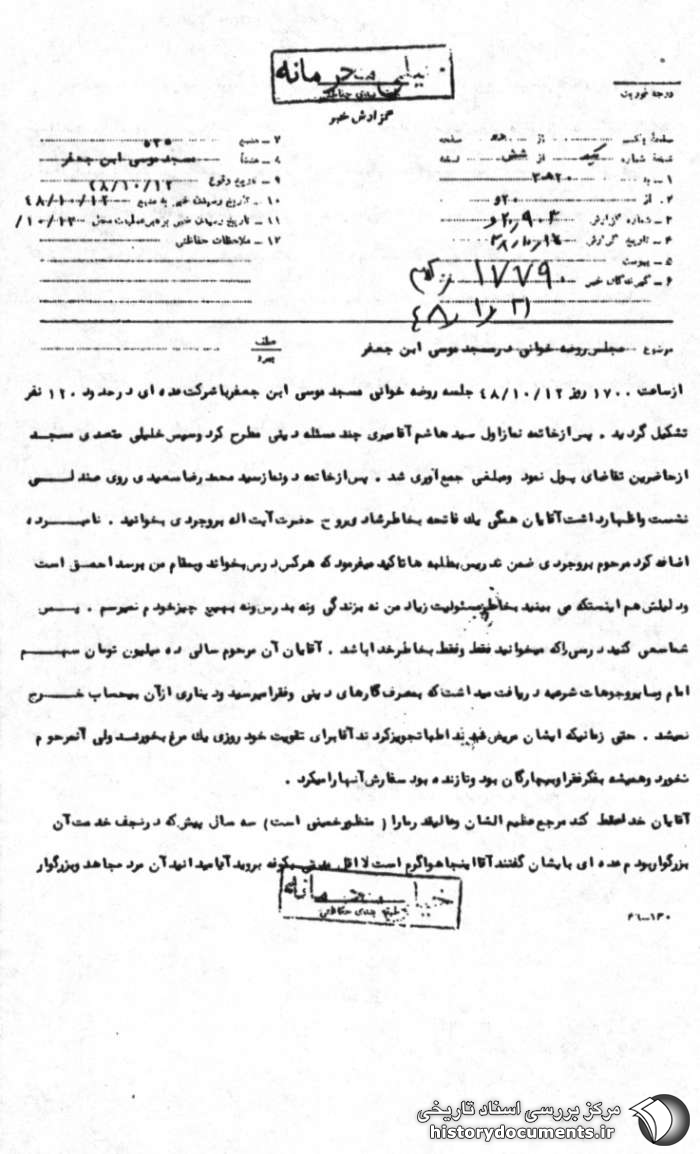 خیلی محرمانه
طبقه بندی حفاظتی
درجه فوریت
گزارش خبر
صفحه یک از دو صفحه
نسخه شماره یک از شش نسخه
۱ ـ به ۲۰ﻫ۲۰
۲ ـ از ۲۰و
۳ ـ شماره گزارش
۴ ـ تاریخ گزارش
۵ ـ پیوست
۶ ـ گیرندگان خبر
۷ ـ منبع
۸ ـ منشأ مسجد موسی ابن جعفر
۹ ـ تاریخ وقوع ۴۸/۱۰/۱۲
۱۰ ـ تاریخ رسیدن خبر به منبع ۴۸/۱۰/۱۲
۱۱ ـ تاریخ رسیدن خبر برهبر عملیات محل
۱۲ ـ ملاحظات حفاظتی
۱۷۷۹۰
موضوع مجلس روضه خوانی در مسجد موسی ابن جعفر
عطف
پیرو
از ساعت ۱۷۰۰ روز ۴۸/۱۰/۱۲ جلسه روضه خوانی مسجد موسی ابن جعفر با شرکت عده ای در حدود ۱۲۰ نفر
تشکیل گردید . پس از خاتمه نماز اول سید هاشم آقا میری چند مسئله دینی مطرح کرد وسپس خلیلی متصدی مسجد
از حاضرین تقاضای پول نمود ومبلغی جمع آوری شد . پس از خاتمه دو نماز سید محمد رضا سعیدی روی صندلی
نشست واظهار داشت آقایان همگی یك فاتحه بخاطر شادی روح حضرت آیت اله بروجردی بخوانید . نامبرده
اضافه کرد مرحوم بروجردی ضمن تدریس بطلبه ها تاکید میفرمود که هرکس درس بخواند وبمقام من برسد احمق است
ودلیلش هم اینستکه می بینید بخاطر مسئولیت زیاد من نه بزندگی ونه بدرس ونه بهیچ چیز خودم نمیرسم . پس
شما سعی کنید درسی راکه میخوانید فقط وفقط بخاطر خدا باشد . آقایان آن مرحوم سالی ده میلیون تومان سهم
امام وسایر وجوهات شرعیه دریافت میداشت که بمصرف کارهای دینی وفقرا میرسید ودیناری از آن بیحساب خرج
نمیشد . حتی زمانیکه ایشان مریض شدند اطبا تجویز کردند آقا برای تقویت خود روزی یك مرغ بخورند ولی آنمرحوم
نخورد وهمیشه بفکر فقرا وبیچارگان بود وتا زنده بود سفارش آنها را میکرد .
آقایان خدا حفظ کند مرجع عظیم الشان وعالیقدر ما را ( منظور خمینی است ) سه سال پیش که در نجف خدمت آن
بزرگوار بودم عده ای بایشان گفتند آقا اینجا هوا گرم است لااقل مدتی بکوفه بروید آیا میدانید آن مرد مجاهد وبزرگوار
خیلی محرمانه
طبقه بندی حفاظتی
۲۶ــ۱۳۰
مرکز بررسی اسناد تاریخی
historydocuments.ir